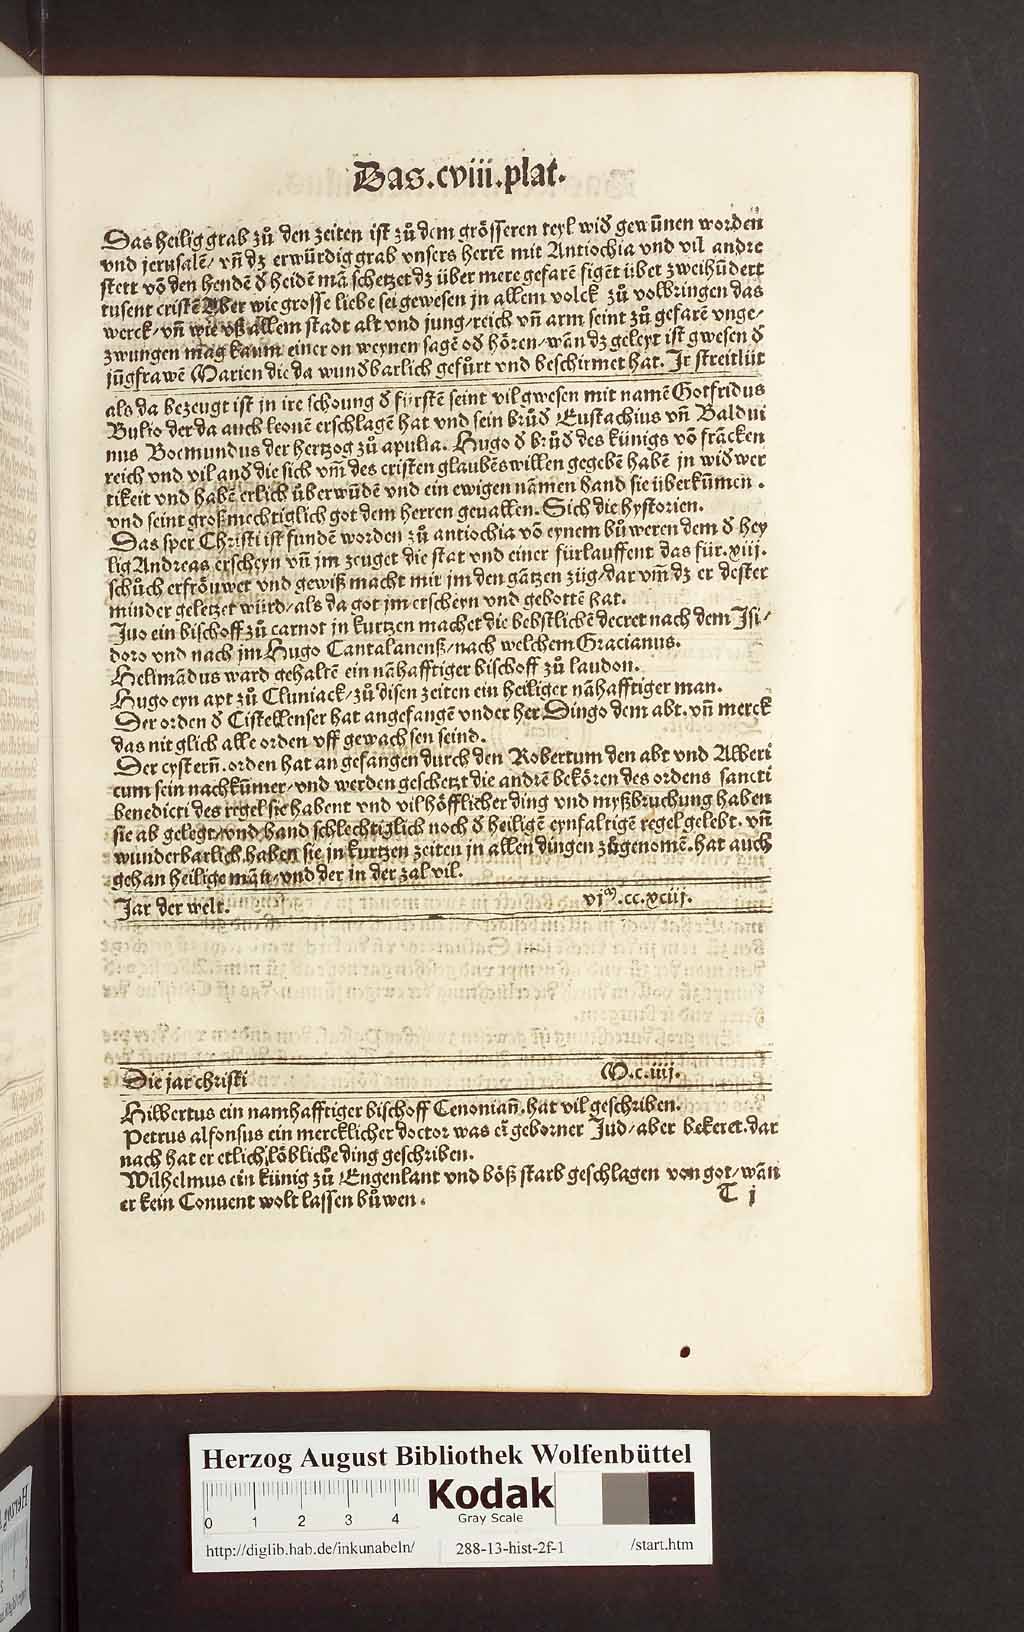 Das.cviii.plat.
Das heilig grab zů den zeiten ist zů dem grösseren teyl wid gewũnen worden
vnd jerusalẽ/ vñ dz erwürdig grab vnsers herrẽ mit Antiochia vnd vil andre
stett võ den hendẽ d heidẽ mã schetzet dz über mere gefarẽ sigẽt über zweihũdert
tusent cristẽ Aber wie grosse liebe sei gewesen jn allem volck zů volbringen das
werck/ vñ wie vß allem stadt alt vnd jung/reich vñ arm seint zů gefarẽ vnge/
zwungen mag kaum einer on weynen sagẽ od hören/ wan dz geleyt ist gwesen d
jũgfrawẽ Marien die da wundbarlich gefürt vnd beschirmet hat. Jr streitlüt
als da bezeugt ist jn ire schoung d fürstẽ seint vil gwesen mit namẽ Gotfridus
Bulio der da auch leonẽ erschlagẽ hat vnd sein brůd Eustachius vñ Baldui
nus Boemundus der hertzog zů apulia. Hugo d brůd des künigs võ frãcken
reich vnd vil and die sich vm̃ des cristen glaubẽs willen gegebẽ habẽ jn wid wer
tikeit vnd habẽ erlich überwũdẽ vnd ein ewigen nãmen hand sie überkũmen.
vnd seint großmechtiglich got dem herren geuallen. Sich die hystorien.
Das sper Christi ist fundẽ worden zů antiochia võ eynem bůweren dem d hey
lig Andreas erscheyn vñ jm zeuget die stat vnd einer fürlauffent das für.xiij.
schůch erfröuwet vnd gewiß macht mit jm den gãtzen züg/dar vm̃ dz er dester
minder geletzet würd/als da got jm erscheyn vnd gebottẽ hat.
Juo ein bischoff zů carnot jn kurtzen machet die bebstlichẽ decret nach dem Jsi/
doro vnd nach jm Hugo Cantalanenß/nach welchem Gracianus.
Helimãdus ward gehaltẽ ein nãhafftiger bischoff zů laudon.
Hugo eyn apt zů Cluniack/zů disen zeiten ein heiliger nãhafftiger man.
Der orden d Cistellenser hat angefangẽ vnder her Dingo dem abt. vñ merck
das nit glich alle orden vff gewachsen seind.
Der cystern̄.orden hat an gefangen durch den Robertum den abt vnd Alberi
cum sein nachkũmer/vnd werden geschetzt die andrẽ bekören des ordens sancti
benedicti des regel sie habent vnd vil höfflicher ding vnd myßbruchung haben
sie ab gelegt/vnd hand schlechtiglich noch d heiligẽ eynfaltigẽ regel gelebt. vñ
wunderbarlich.haben sie jn kurtzen zeiten jn allen dingen zůgenomẽ.hat auch
gehan heilige mãn/vnd der in der zal vil.
Jar der welt. vjm.cc.xciij.
Die jar christi M.c.iiij.
Hilbertus ein namhafftiger bischoff Cenonian̄.hat vil geschriben.
Petrus alfonsus ein mercklicher doctor was eĩ geborner Jud/aber bekeret.dar
nach hat er etlich löbliche ding geschriben.
Wilhelmus ein künig zů Engenlant vnd böß starb geschlagen von got/wãn
er kein Conuent wolt lassen bůwen.
T j
Herzog August Bibliothek Wolfenbüttel
0 1 2 3 4
Kodak
Gray Scale
http://diglib.hab.de/inkunabeln/ 288-13-hist-2f-1 /start.htm